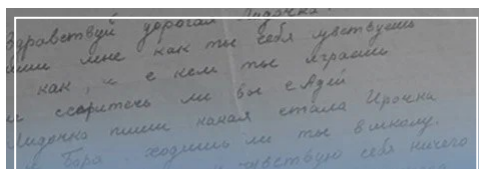 Здравствуй дорогая Лидочка!
пиши мне как ты себя чувствуешь
как, и с кем ты играешь
не ссоритесь ли вы с Адей
Лидочка пиши какая стала Ирочка
Бора. ходишь ли ты в школу.
чувствую себя ничего